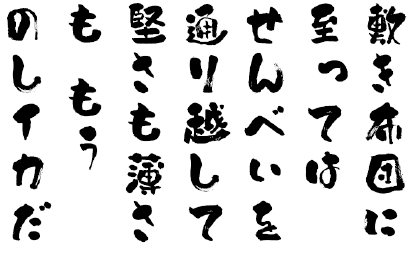 敷き布団に
至っては
せんべいを
通り越して
堅さも薄さ
も もう
のしイカだ